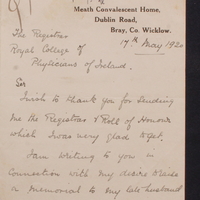 Meath Convalescent Home,
Dublin Road,
Bray, Co. Wicklow.
17th May 1920
The Registrar
Royal College of
Physicians of Ireland.
Sir
I wish to thank you for sending
me the Registrar's Roll of Honour
which I was very glad to get.
I am writing to you in
connection with my desire to raise
a memorial to my late husband